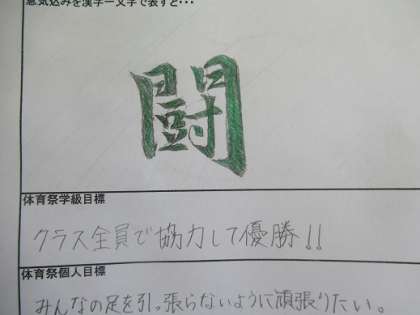 意気込みを漢字一文字で表すと・・・
闘
体育祭学級目標
クラス全員で協力して優勝!!
体育祭個人目標
みんなの足を引っ張らないように頑張りたい。